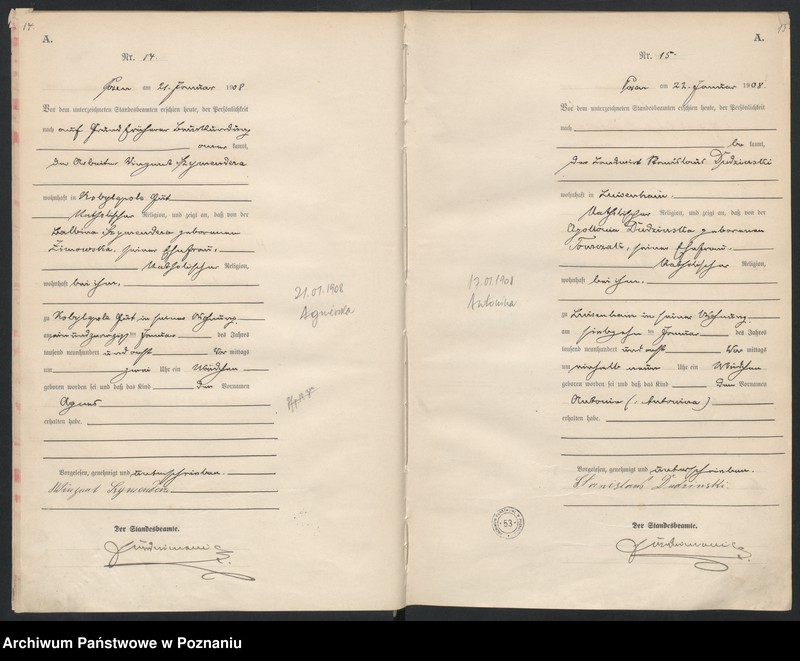 14.
A.
Nr. 14.
Posen am 21. Januar 1908
Vor dem unterzeichneten Standesbeamten erschien heute, der Persönlichkeit
nach auf Grund früherer Beurkundung
kannt,
der Arbeiter Vinzent Szymendera
wohnhaft in Kobylepole Gut
Katholischer Religion, und zeigt an, daß von der
Balbina Szymendera geborenen
Zimowska, seiner Ehefrau,
Katholischer Religion,
wohnhaft bei ihm,
zu Kobylepole Gut in seiner Wohnung
am einundzwanzigsten Januar des Jahres
tausend neunhundert und acht Vor mittags
um zwei Uhr ein Mädchen
geboren worden sei und daß das Kind den Vornamen
Agnes
erhalten habe.
Vorgelesen, genehmigt und unterschrieben.
Szymendera
Der Standesbeamte.
21.01.1908
Agnieszka
15
A.
Nr. 15.
Posen am 22. Januar 1908.
Vor dem unterzeichneten Standesbeamten erschien heute, der Persönlichkeit
nach
be kannt,
der Landwirt Stanislaus Dudzinski
wohnhaft in Luisenhain,
Katholischer Religion, und zeigt an, daß von der
Apollonia Dudzinska geborenen
seiner Ehefrau,
Katholischer Religion,
wohnhaft bei ihm,
zu Luisenhain in seiner Wohnung
am siebzehn ten Januar des Jahres
tausend neunhundert und acht Vor mittags
um einhalb neun Uhr ein Mädchen
geboren worden sei und daß das Kind den Vornamen
Antonie (: Antonina)
erhalten habe.
Vorgelesen, genehmigt und unterschrieben.
Stanislaus Dudzinski
Der Standesbeamte.
17.01.1908
Antonina
53
Archiwum Państwowe w Poznaniu